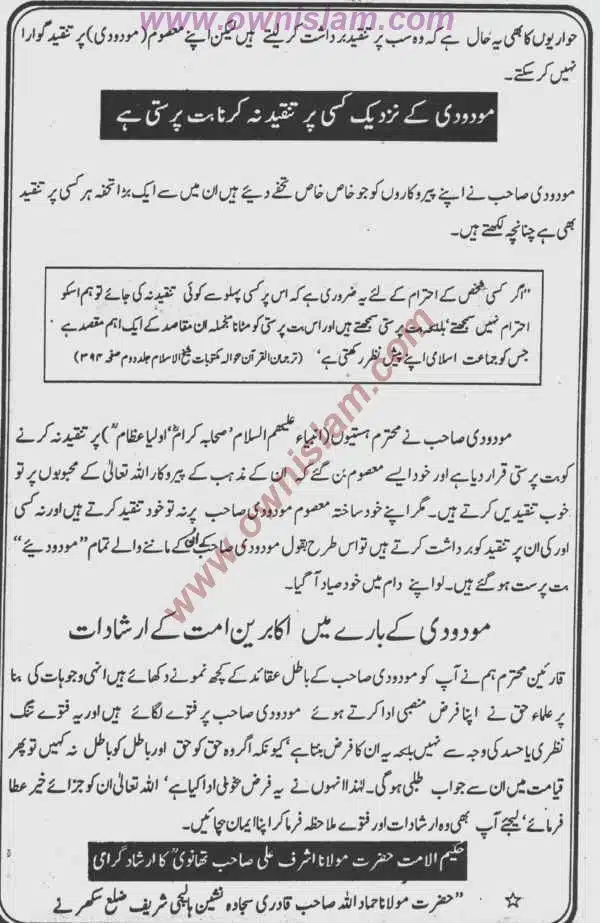 www.ownislam.com
حواریوں کا بھی یہ حال ہے کہ وہ سب پر تنقید برداشت کر لیتے ہیں لیکن اپنے معصوم (مودودی) پر تنقید گوارا
نہیں کر سکتے۔
مودودی کے نزدیک کسی پر تنقید نہ کرنا بت پرستی ہے
مودودی صاحب نے اپنے پیروکاروں کو جو خاص خاص تحفے دیئے ہیں ان میں سے ایک بڑا تحفہ ہر کسی پر تنقید
بھی ہے چنانچہ لکھتے ہیں۔
"اگر کسی شخص کے احترام کے لئے یہ ضروری ہے کہ اس پر کسی پہلو سے کوئی تنقید نہ کی جائے تو ہم اسکو
احترام نہیں سمجھتے، بلکہ بت پرستی سمجھتے ہیں اور اس بت پرستی کو مٹانا منجملہ ان مقاصد کے ایک اہم مقصد ہے
جس کو جماعت اسلامی اپنے پیش نظر رکھتی ہے' (ترجمان القرآن حوالہ مکتوبات شیخ الاسلام جلد دوم صفحہ ۳۹۲)
مودودی صاحب نے محترم ہستیوں (انبیاء علیهم السلام' صحابہ کرامؓ' اولیا عظامؒ) پر تنقید نہ کرنے
کو بت پرستی قرار دیا ہے اور خود ایسے معصوم بن گئے کہ ان کے مذہب کے پیروکار اللہ تعالیٰ کے محبوبوں پر تو
خوب تنقیدیں کرتے ہیں۔ مگر اپنے خود ساختہ معصوم مودودی صاحب پر نہ تو خود تنقید کرتے ہیں اور نہ کسی
اور کی ان پر تنقید کو برداشت کرتے ہیں تو اس طرح بقول مودودی صاحب کے ان کے ماننے والے تمام "مودودیئے"
بت پرست ہو گئے ہیں۔ لو اپنے دام میں خود صیاد آ گیا۔
مودودی کے بارے میں اکابرین امت کے ارشادات
قارئین محترم ہم نے آپ کو مودودی صاحب کے باطل عقائد کے کچھ نمونے دکھائے ہیں انہی وجوہات کی بنا
پر علماء حق نے اپنا فرض منصبی ادا کرتے ہوئے مودودی صاحب پر فتوے لگائے ہیں اور یہ فتوے تنگ
نظری یا حسد کی وجہ سے نہیں بلکہ یہ ان کا فرض بنتا ہے' کیونکہ اگر وہ حق کو حق اور باطل کو باطل نہ کہیں تو پھر
قیامت میں ان سے جواب طلبی ہو گی۔ لہٰذا انہوں نے یہ فرض بخوبی ادا کیا ہے' اللہ تعالیٰ ان کو جزائے خیر عطا
فرمائے' لیجئے آپ بھی وہ ارشادات اور فتوے ملاحظہ فرما کر اپنا ایمان بچائیں۔
حکیم الامت حضرت مولانا اشرف علی صاحب تھانویؒ کا ارشاد گرامی
☆ "حضرت مولانا حماد اللہ صاحب قادری سجادہ نشین ہالیجی شریف ضلع سکھر نے
www.ownislam.com